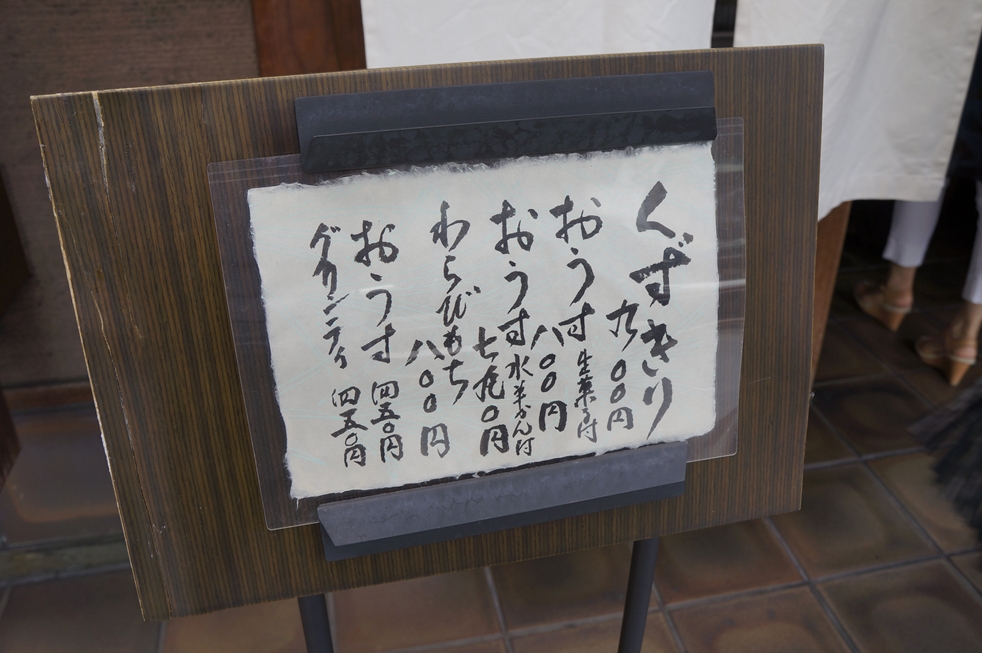 くずきり
九〇〇円
おうす 生菓子付
八〇〇円
おうす 水羊かん付
七五〇円
わらびもち
八〇〇円
おうす 四五〇円
グリンティ 四五〇円